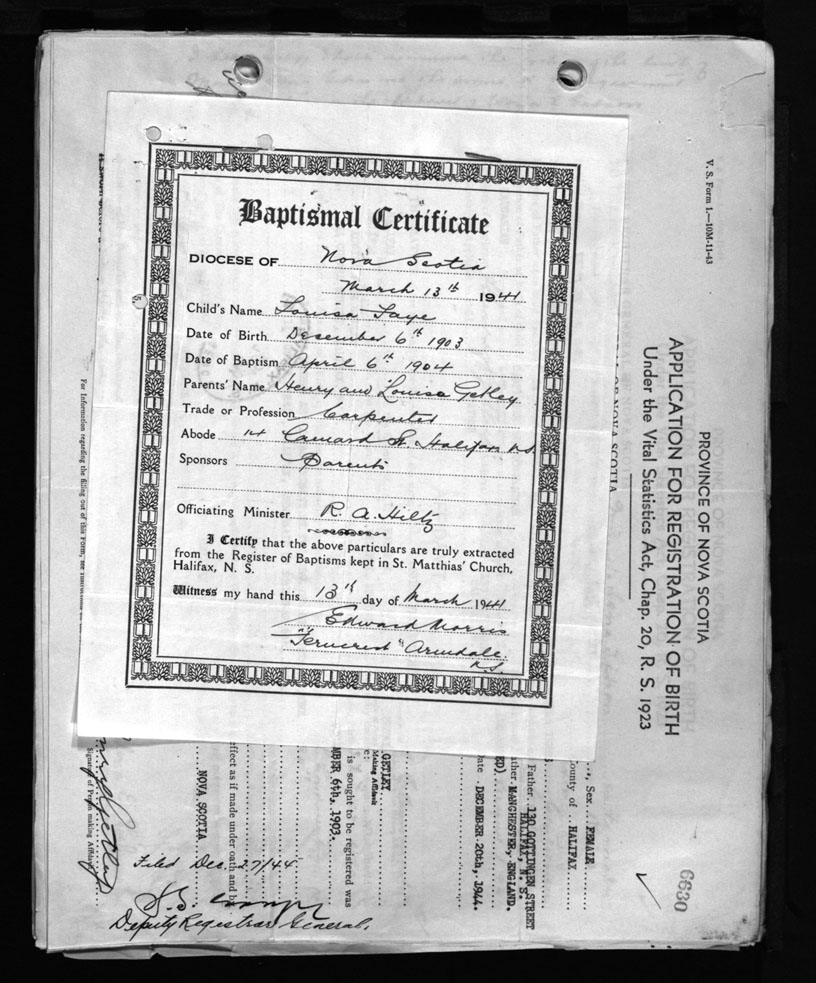 Baptismal Certificate
DIOCESE OF Nova Scotia
March 13th 1944
Child's Name Louisa Faye
Date of Birth December 6th 1903
Date of Baptism April 6th 1904
Parents' Name Henry and Louisa Getley
Trade or Profession Carpenter
Abode 14 St. Halifax N.S.
Sponsors Parents
Officiating Minister R. A. Hiltz
I Certify that the above particulars are truly extracted
from the Register of Baptisms kept in St. Matthias' Church,
Halifax, N. S.
Witness my hand this 13th day of March 1944
Edward Morris
"Ferncrest" Armdale
N.S.
V. S. Form 1.—10M-11-43
PROVINCE OF NOVA SCOTIA
APPLICATION FOR REGISTRATION OF BIRTH
Under the Vital Statistics Act, Chap. 20, R. S. 1923
OF NOVA SCOTIA
6630
Sex FEMALE
County of HALIFAX
Father 130 GOTTINGEN STREET
HALIFAX, N. S.
MANCHESTER, ENGLAND.
DECEMBER 20th, 1944.
GETLEY
Making Affidavit
is sought to be registered was
MBER 6th, 1903.
effect as if made under oath and b
NOVA SCOTIA
Signature of Person making Affidav
For Information regarding the filling out of the Form, see
Filed Dec. 27/44
Deputy Registrar General.